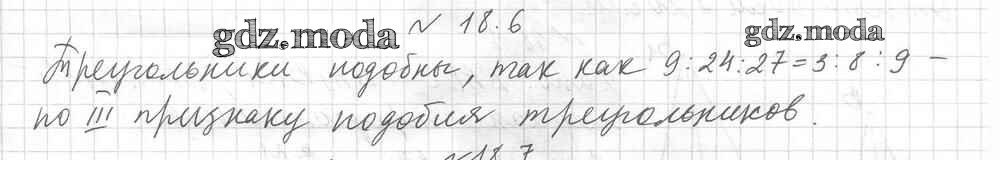 № 18.6
gdz.moda gdz.moda
Треугольники подобны, так как 9:24:27=3:8:9 –
по III признаку подобия треугольников.
№18.7